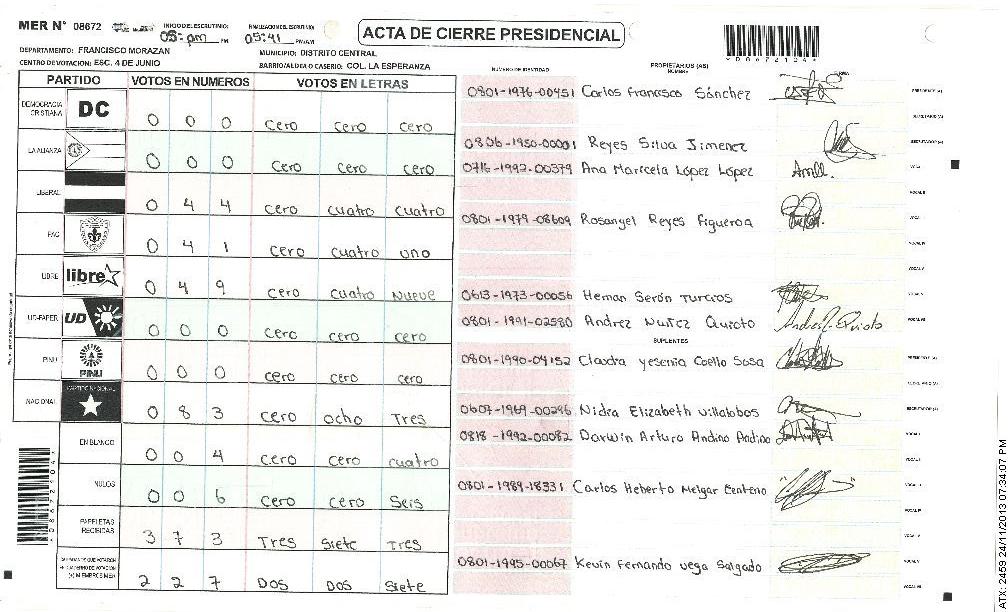 MER N° 08672 INICIO DEL ESCRUTINIO: 05: pm PM FINALIZACION DEL ESCRUTINIO: 05:41 PM/AM
ACTA DE CIERRE PRESIDENCIAL
*08672104*
DEPARTAMENTO: FRANCISCO MORAZAN MUNICIPIO: DISTRITO CENTRAL
CENTRO DE VOTACION: ESC. 4 DE JUNIO BARRIO/ALDEA O CASERIO: COL. LA ESPERANZA
PARTIDO VOTOS EN NUMEROS VOTOS EN LETRAS
DEMOCRACIA CRISTIANA DC 0 0 0 cero cero cero
LA ALIANZA 0 0 0 cero cero cero
LIBERAL 0 4 4 cero cuatro cuatro
PAC 0 4 1 cero cuatro uno
LIBRE libre 0 4 9 cero cuatro Nueve
UD-FAPER UD 0 0 0 cero cero cero
PINU PINU 0 0 0 cero cero cero
NACIONAL PARTIDO NACIONAL 0 8 3 cero ocho Tres
EN BLANCO 0 0 4 cero cero cuatro
NULOS 0 0 6 cero cero Seis
PAPELETAS RECIBIDAS 3 7 3 Tres siete Tres
2 2 7 Dos Dos Siete
NUMERO DE IDENTIDAD PROPIETARIOS (AS) NOMBRE FIRMA
0801-1976-00451 Carlos Francisco Sánchez PRESIDENTE (A)
SECRETARIO (A)
0806-1950-00001 Reyes Silva Jimenez ESCRUTADOR (A)
0716-1992-00379 Ana Maricela López López VOCAL I
VOCAL II
0801-1979-08609 Rosangel Reyes Figueroa VOCAL III
VOCAL IV
VOCAL V
0613-1973-00056 Hernan Serón Turcios VOCAL VI
0801-1991-02580 Andrez Nuñez Quioto VOCAL VII
SUPLENTES
0801-1990-04152 Claudra yesenia Coello Sosa PRESIDENTE (A)
SECRETARIO (A)
0607-1969-00296 Nidra Elizabeth villalobos ESCRUTADOR (A)
0818-1992-00082 Darwin Arturo Andino Andino VOCAL I
VOCAL II
0801-1989-18331 Carlos Heberto Melgar Centeno VOCAL III
VOCAL IV
VOCAL V
0801-1995-00067 Kevin Fernando vega Salgado VOCAL VI
VOCAL VII
*08672104*
ATX: 2459 24/11/2013 07:34:07 PM